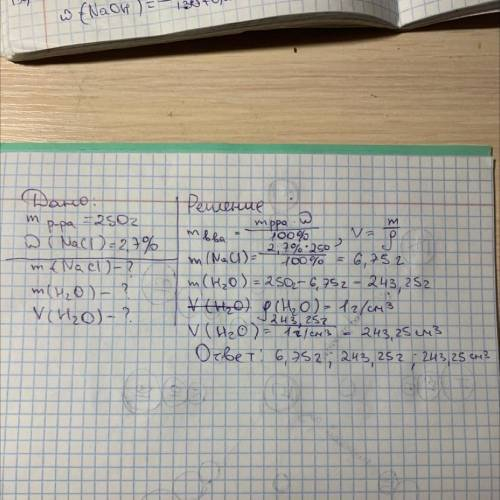 ω(NaOH) =
Дано:
m р-ра = 250г
ω(NaCl) = 2,7%
m(NaCl) - ?
m(H₂O) - ?
V(H₂O) - ?
Решение:
m в-ва = mрра · ω / 100%, V = m/ρ
m(NaCl) = 2,7% · 250 / 100% = 6,75г
m(H₂O) = 250г - 6,75г = 243,25г
V(H₂O) ρ(H₂O) = 1г/см³
V(H₂O) = 243,25г / 1г/см³ = 243,25см³
Ответ: 6,75г; 243,25г; 243,25см³